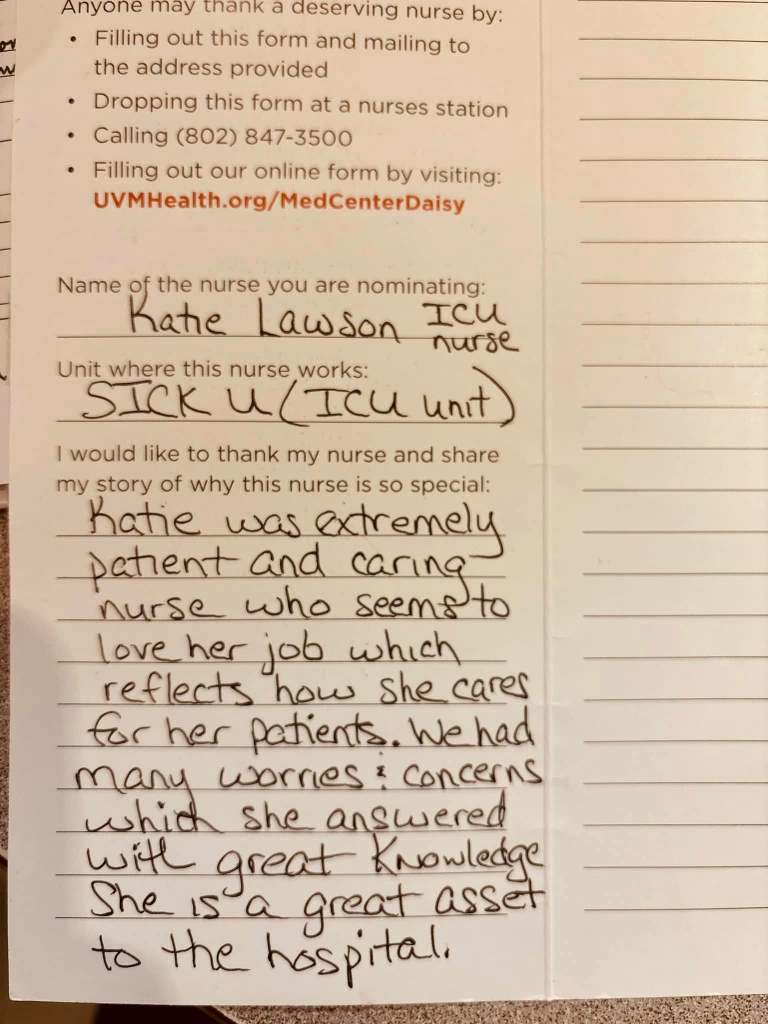 Anyone may thank a deserving nurse by:
• Filling out this form and mailing to
the address provided
• Dropping this form at a nurses station
• Calling (802) 847-3500
• Filling out our online form by visiting:
UVMHealth.org/MedCenterDaisy
Name of the nurse you are nominating:
Katie Lawson ICU
nurse
Unit where this nurse works:
SICK U (ICU unit)
I would like to thank my nurse and share
my story of why this nurse is so special:
Katie was extremely
patient and caring
nurse who seems to
love her job which
reflects how she cares
for her patients. We had
many worries & concerns
which she answered
with great knowledge
She is a great asset
to the hospital.